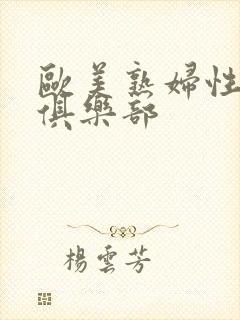 歐美熟婦性
俱樂部
楊雲芳